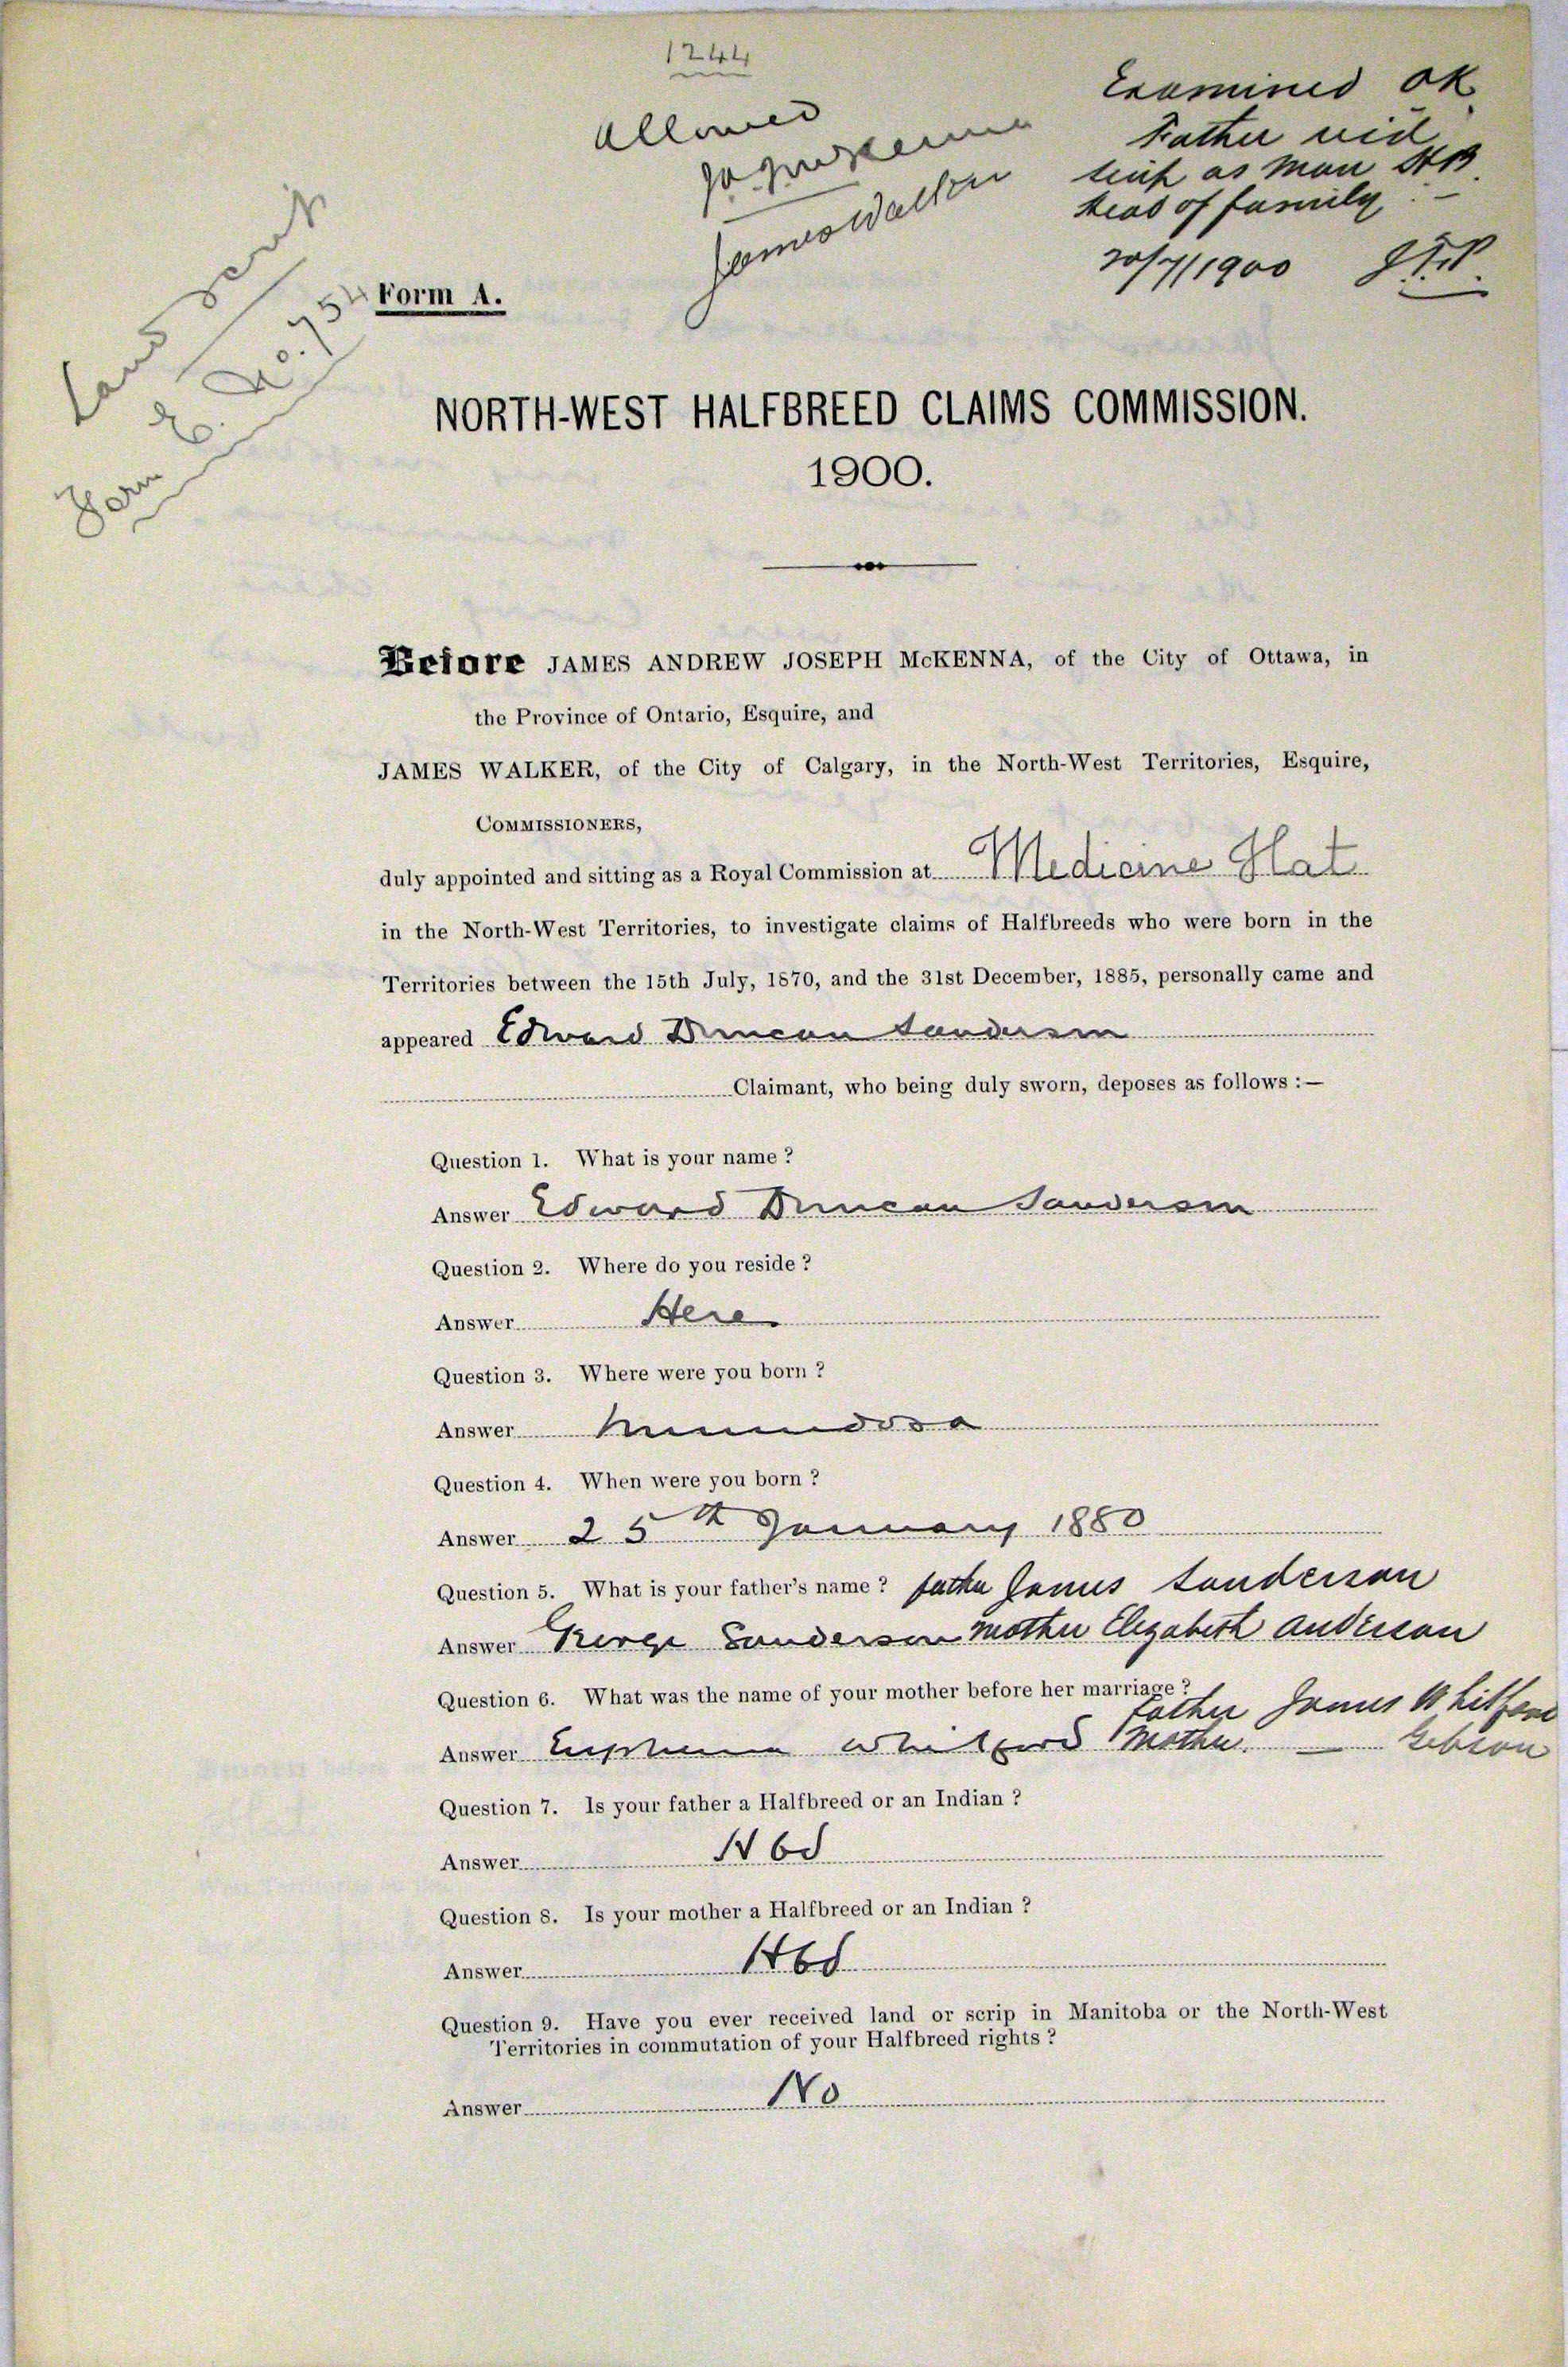 1244
Allowed
JAJMcKenna
James Walker
Examined OK
Father recd
scrip as Man HB
head of family
20/7/1900
Land Scrip
Form
Form A.
NORTH-WEST HALFBREED CLAIMS COMMISSION.
1900.
Before JAMES ANDREW JOSEPH McKENNA, of the City of Ottawa, in
the Province of Ontario, Esquire, and
JAMES WALKER, of the City of Calgary, in the North-West Territories, Esquire,
COMMISSIONERS,
duly appointed and sitting as a Royal Commission at Medicine Hat
in the North-West Territories, to investigate claims of Halfbreeds who were born in the
Territories between the 15th July, 1870, and the 31st December, 1885, personally came and
appeared Edward Duncan Sanderson
Claimant, who being duly sworn, deposes as follows :—
Question 1. What is your name ?
Answer Edward Duncan Sanderson
Question 2. Where do you reside ?
Answer Here
Question 3. Where were you born ?
Answer Minnedosa
Question 4. When were you born ?
Answer 25th January 1880
Question 5. What is your father's name ? father James Sanderson
Answer George Sanderson mother Elizabeth Anderson
Question 6. What was the name of your mother before her marriage ?
father James Whitford
Answer Euphemia Whitford Mother — Gibson
Question 7. Is your father a Halfbreed or an Indian ?
Answer Hbd
Question 8. Is your mother a Halfbreed or an Indian ?
Answer Hbd
Question 9. Have you ever received land or scrip in Manitoba or the North-West
Territories in commutation of your Halfbreed rights ?
Answer No